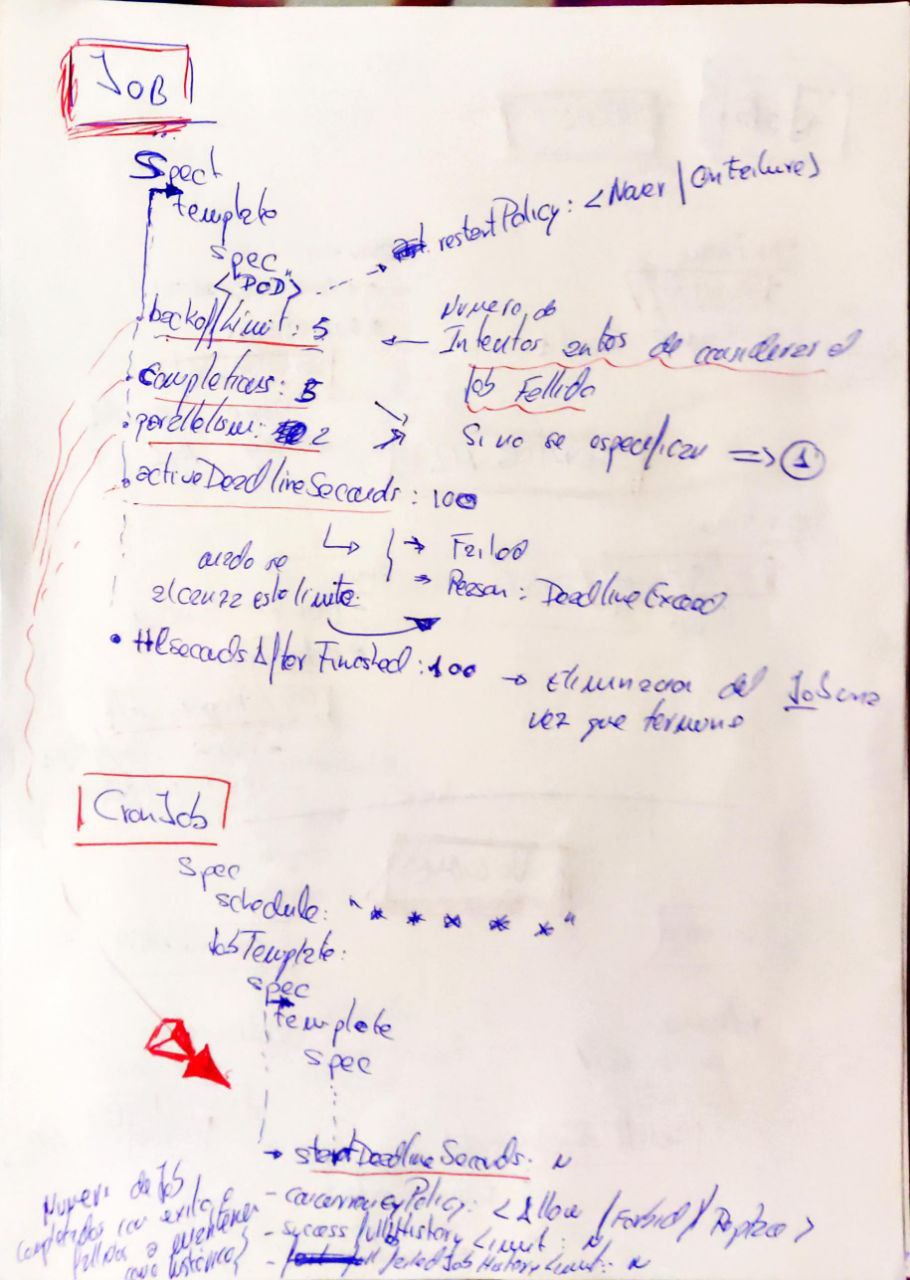 JOB
Spec
template
spec
<"POD">
restartPolicy: <Never | OnFailure>
backoffLimit: 5
Numero de
Intentos antes de considerar el
Job Fallido
completions: 5
parallelism: 2
Si no se especifican => 1
activeDeadlineSeconds: 100
cuando se
alcanza este limite
→ Failed
→ Reason: DeadlineExceed
• ttlsecondsAfterFinished: 100
→ Eliminacion del Job una
vez que termine
CronJob
Spec
schedule: "* * * * *"
JobTemplate:
spec
template
spec
→ startDeadlineSeconds: N
- concurrencyPolicy: <Allow | Forbid | Replace>
- successfullHistoryLimit: N
- failedJobHistoryLimit: N
Numero de Job
completados con exito o
fallidos a mantener
como historico